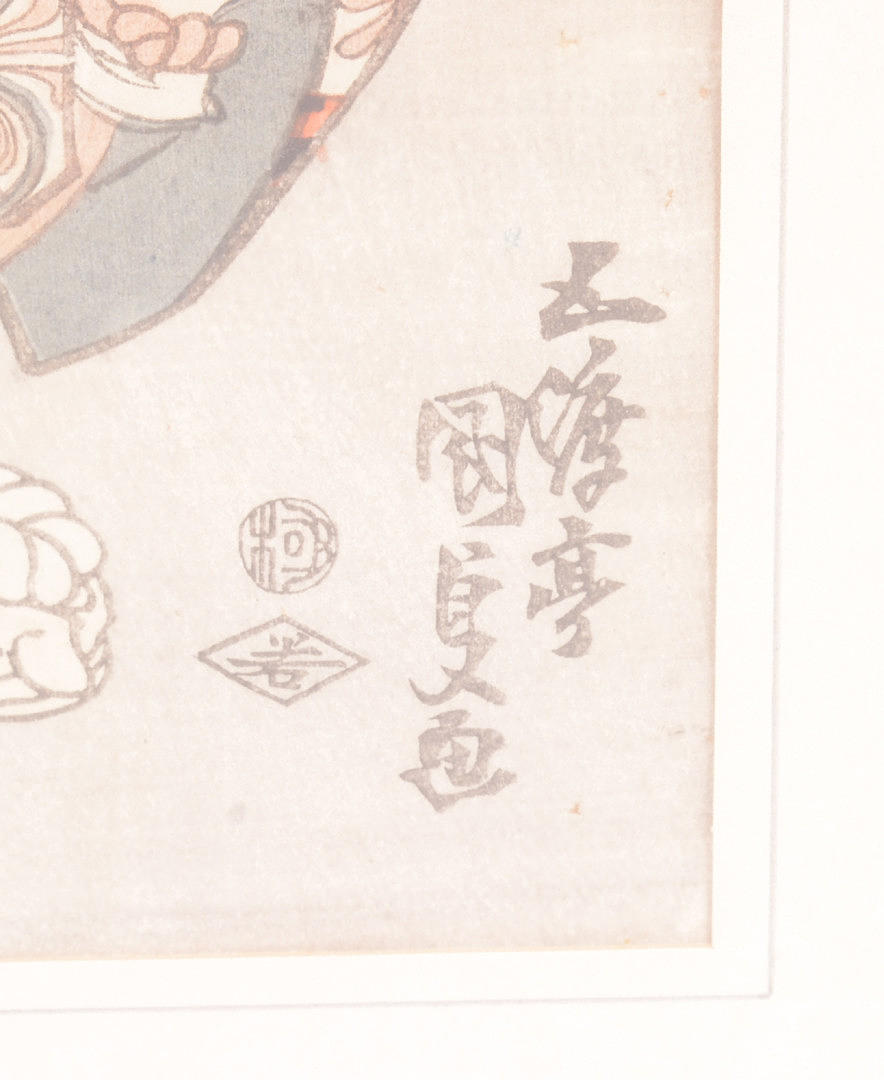 五渡亭
國貞画
極
若